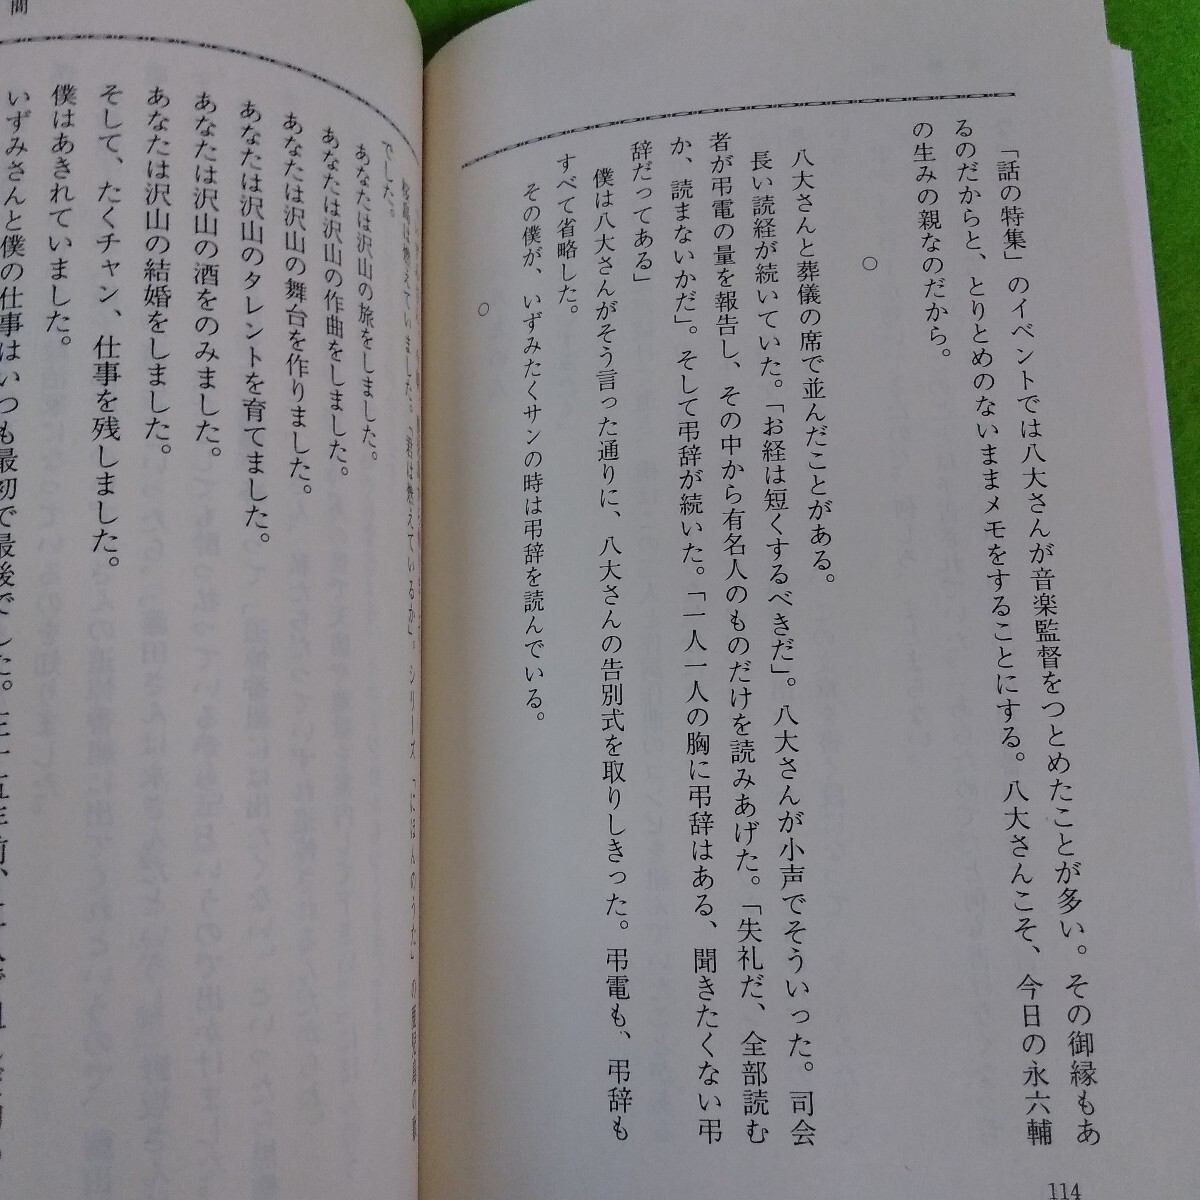 「話の特集」のイベントでは八大さんが音楽監督をつとめたことが多い。その御縁もあ
るのだからと、とりとめのないままメモをすることにする。八大さんこそ、今日の永六輔
の生みの親なのだから。
○
八大さんと葬儀の席で並んだことがある。
長い読経が続いていた。「お経は短くするべきだ」。八大さんが小声でそういった。司会
者が弔電の量を報告し、その中から有名人のものだけを読みあげた。「失礼だ、全部読む
か、読まないかだ」。そして弔辞が続いた。「一人一人の胸に弔辞はある、聞きたくない弔
辞だってある」
僕は八大さんがそう言った通りに、八大さんの告別式を取りしきった。弔電も、弔辞も
すべて省略した。
その僕が、いずみたくサンの時は弔辞を読んでいる。
○
114
間
は燃えていました。「君は燃えているか」。シリーズ「にほんのうた」の
でした。
あなたは沢山の旅をしました。
あなたは沢山の作曲をしました。
あなたは沢山の舞台を作りました。
あなたは沢山のタレントを育てました。
あなたは沢山の酒をのみました。
あなたは沢山の結婚をしました。
そして、たくチャン、仕事を残しました。
僕はあきれていました。
いずみさんと僕の仕事はいつも最初で最後でした。